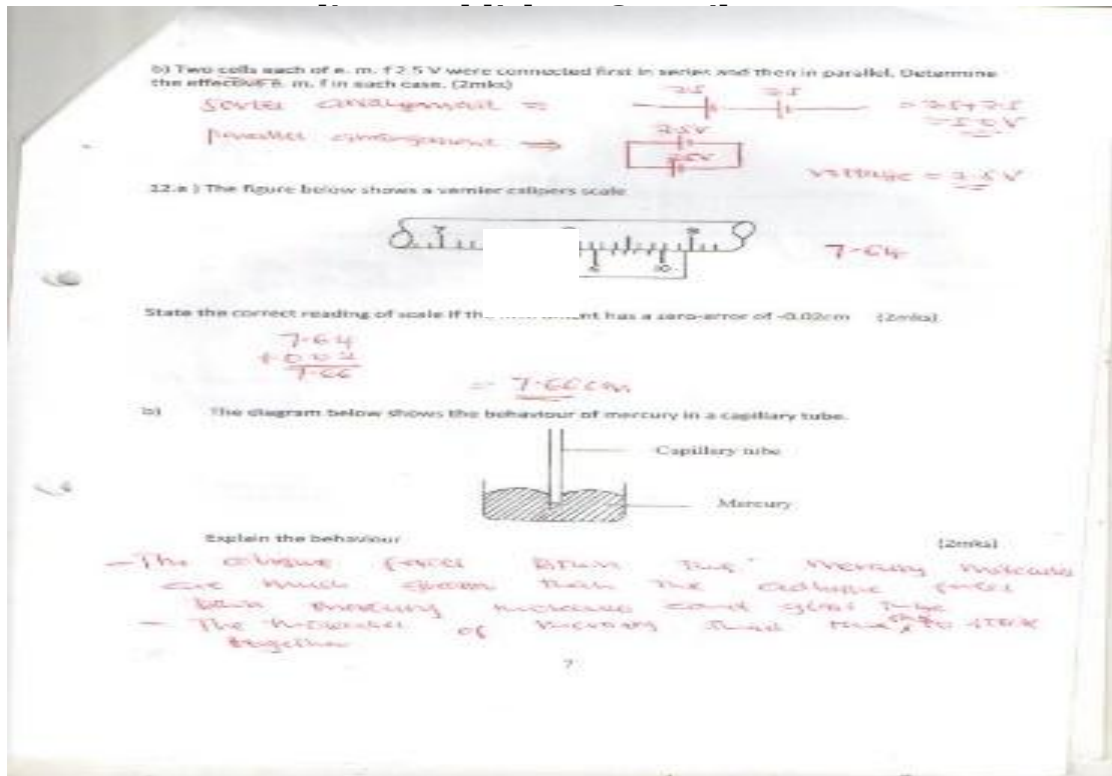 b) Two cells each of e. m. f 2.5 V were connected first in series and then in parallel. Determine
the effective e. m. f in each case. (2mks)
Series arrangement =
2.5 2.5
= 2.5+2.5
= 5.0 V
Parallel arrangement →
2.5V
2.5V
Voltage = 2.5 V
12.a ) The figure below shows a vernier calipers scale
7
8
10
7.64
State the correct reading of scale if th nt has a zero-error of -0.02cm (2mks)
7.64
+0.02
7.66
= 7.66cm
b) The diagram below shows the behaviour of mercury in a capillary tube.
Capillary tube
Mercury
Explain the behaviour (2mks)
- The cohesive forces btwn the mercury molecules
are much than the adhesive forces
btwn mercury molecules and glass tube
- The molecules of mercury to stick
together
7